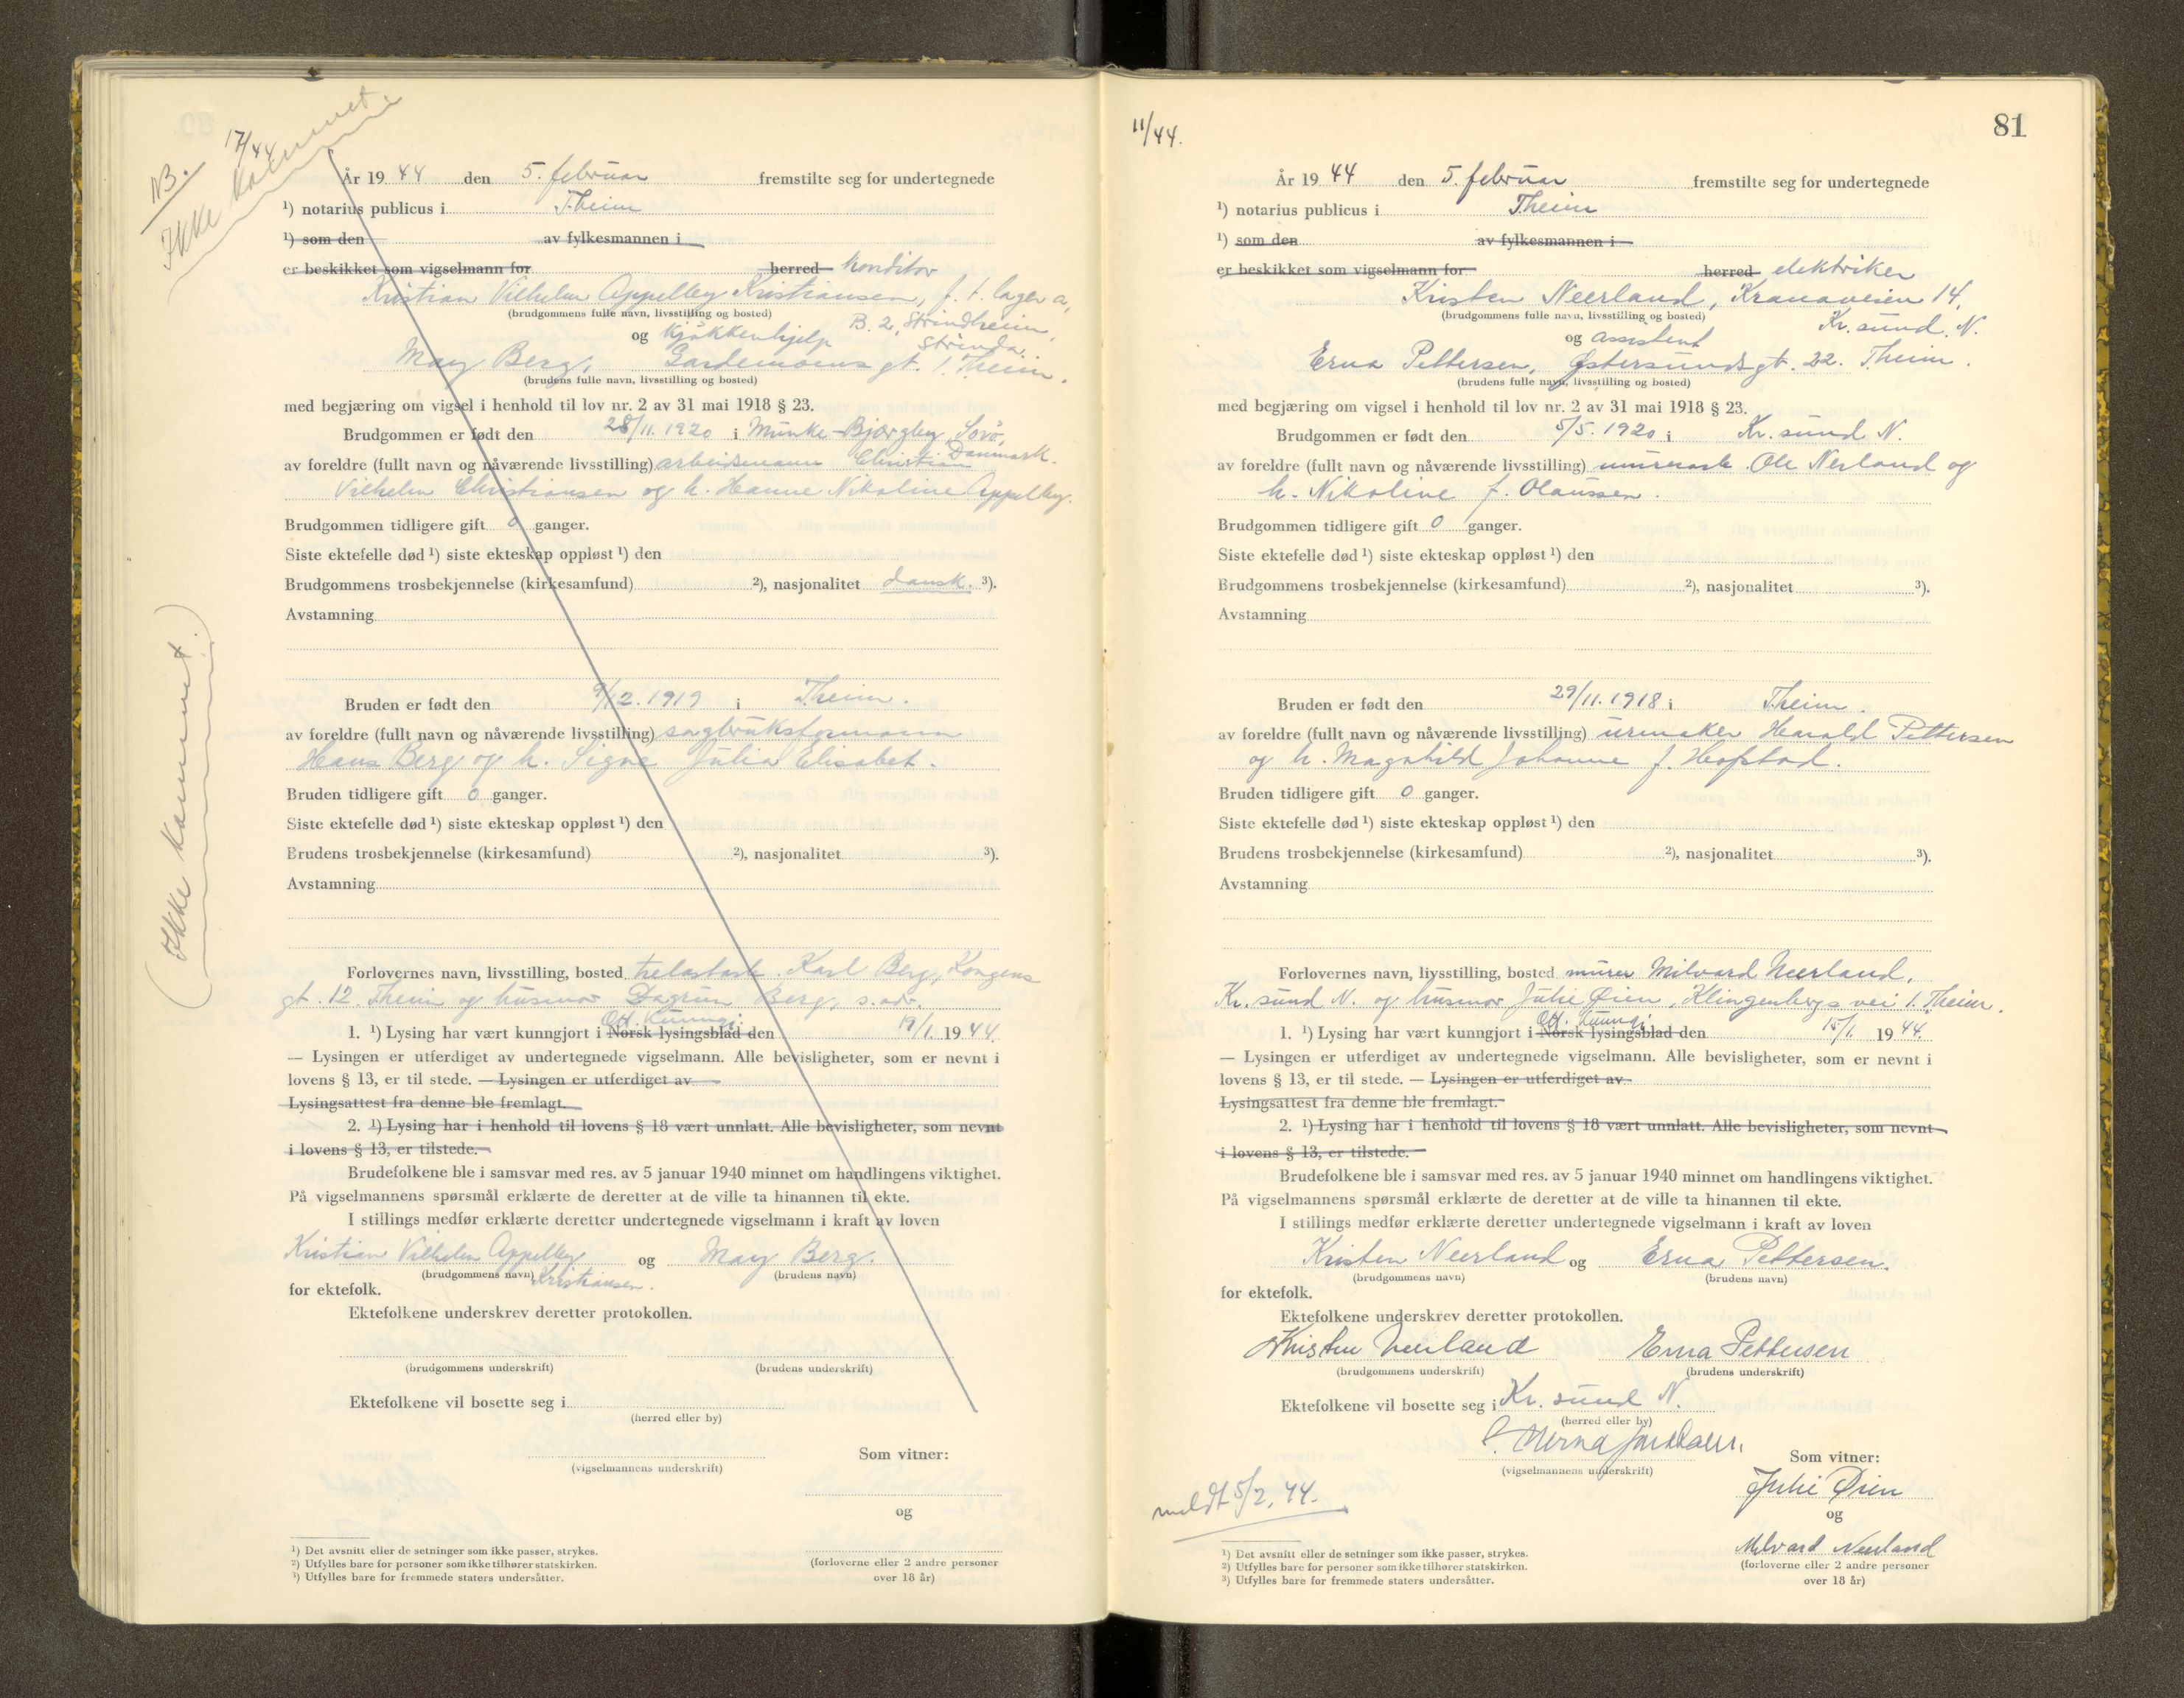 NB.
17/44
Ikke kommet.
År 19 44 den 5. februar fremstilte seg for undertegnede
¹) notarius publicus i T.heim
¹) som den av fylkesmannen i
er beskikket som vigselmann for herred konditor
Kristian Vilhelm Appelby Kristiansen, f. t. lager a,
(brudgommens fulle navn, livsstilling og bosted)
B. 2, Strindheim,
Strinda.
og kjøkkenhjelp
May Berg, Gardemoens gt. 1. T.heim.
(brudens fulle navn, livsstilling og bosted)
med begjæring om vigsel i henhold til lov nr. 2 av 31 mai 1918 § 23.
Brudgommen er født den 28/11. 1920 i Munke-Bjergby, Sorö,
Danmark.
av foreldre (fullt navn og nåværende livsstilling) arbeidsmann Christian
Vilhelm Christiansen og h. Hanne Nikoline Appelby.
Brudgommen tidligere gift 0 ganger.
Siste ektefelle død ¹) siste ekteskap oppløst ¹) den
Brudgommens trosbekjennelse (kirkesamfund) ²), nasjonalitet dansk. ³).
Avstamning
Bruden er født den 9/12. 1919 i T.heim.
av foreldre (fullt navn og nåværende livsstilling) sagbruksformann
Hans Berg og h. Signe Julia Elisabet.
Bruden tidligere gift 0 ganger.
Siste ektefelle død ¹) siste ekteskap oppløst ¹) den
Brudens trosbekjennelse (kirkesamfund) ²), nasjonalitet ³).
Avstamning
(Ikke kommet.)
Forlovernes navn, livsstilling, bosted trelastarb. Karl Berg, Kongens
gt. 12. T.heim og husmor Dagrun Berg, s. adr.
Off. Kunngj.
1. ¹) Lysing har vært kunngjort i Norsk lysingsblad den 19/1. 19 44.
— Lysingen er utferdiget av undertegnede vigselmann. Alle bevisligheter, som er nevnt i
lovens § 13, er til stede. — Lysingen er utferdiget av
Lysingsattest fra denne ble fremlagt.
2. ¹) Lysing har i henhold til lovens § 18 vært unnlatt. Alle bevisligheter, som nevnt
i lovens § 13, er tilstede.
Brudefolkene ble i samsvar med res. av 5 januar 1940 minnet om handlingens viktighet.
På vigselmannens spørsmål erklærte de deretter at de ville ta hinannen til ekte.
I stillings medfør erklærte deretter undertegnede vigselmann i kraft av loven
Kristian Vilhelm Appelby og May Berg.
(brudgommens navn) Kristiansen. (brudens navn)
for ektefolk.
Ektefolkene underskrev deretter protokollen.
(brudgommens underskrift) (brudens underskrift)
Ektefolkene vil bosette seg i
(herred eller by)
Som vitner:
(vigselmannens underskrift)
og
(forloverne eller 2 andre personer
over 18 år)
¹) Det avsnitt eller de setninger som ikke passer, strykes.
²) Utfylles bare for personer som ikke tilhører statskirken.
³) Utfylles bare for fremmede staters undersåtter.
81
11/44.
År 19 44 den 5. februar fremstilte seg for undertegnede
¹) notarius publicus i T.heim
¹) som den av fylkesmannen i
er beskikket som vigselmann for herred elektriker
Kristen Neerland, Kranaveien 14,
(brudgommens fulle navn, livsstilling og bosted) Kr. sund. N.
og assistent
Erna Pettersen, Østersundsgt. 22. T.heim.
(brudens fulle navn, livsstilling og bosted)
med begjæring om vigsel i henhold til lov nr. 2 av 31 mai 1918 § 23.
Brudgommen er født den 5/5. 1920 i Kr. sund N.
av foreldre (fullt navn og nåværende livsstilling) murerarb. Ole Nerland og
h. Nikoline f. Olaussen.
Brudgommen tidligere gift 0 ganger.
Siste ektefelle død ¹) siste ekteskap oppløst ¹) den
Brudgommens trosbekjennelse (kirkesamfund) ²), nasjonalitet ³).
Avstamning
Bruden er født den 29/11. 1918 i T.heim.
av foreldre (fullt navn og nåværende livsstilling) urmaker Harald Pettersen
og h. Magnhild Johanne f. Hofstad.
Bruden tidligere gift 0 ganger.
Siste ektefelle død ¹) siste ekteskap oppløst ¹) den
Brudens trosbekjennelse (kirkesamfund) ²), nasjonalitet ³).
Avstamning
Forlovernes navn, livsstilling, bosted murer Milvard Neerland,
Kr. sund N. og husmor Julie Øien, Klingenbergs vei 1. T.heim.
Off. Kunngj.
1. ¹) Lysing har vært kunngjort i Norsk lysingsblad den 15/1. 19 44.
— Lysingen er utferdiget av undertegnede vigselmann. Alle bevisligheter, som er nevnt i
lovens § 13, er til stede. — Lysingen er utferdiget av
Lysingsattest fra denne ble fremlagt.
2. ¹) Lysing har i henhold til lovens § 18 vært unnlatt. Alle bevisligheter, som nevnt
i lovens § 13, er tilstede.
Brudefolkene ble i samsvar med res. av 5 januar 1940 minnet om handlingens viktighet.
På vigselmannens spørsmål erklærte de deretter at de ville ta hinannen til ekte.
I stillings medfør erklærte deretter undertegnede vigselmann i kraft av loven
Kristen Neerland og Erna Pettersen.
(brudgommens navn) (brudens navn)
for ektefolk.
Ektefolkene underskrev deretter protokollen.
Kristen Neerland Erna Pettersen
(brudgommens underskrift) (brudens underskrift)
Ektefolkene vil bosette seg i Kr. sund N.
(herred eller by)
Som vitner:
(vigselmannens underskrift)
Julie Øien
meldt 5/2. 44.
og
Milvard Neerland
(forloverne eller 2 andre personer
over 18 år)
¹) Det avsnitt eller de setninger som ikke passer, strykes.
²) Utfylles bare for personer som ikke tilhører statskirken.
³) Utfylles bare for fremmede staters undersåtter.